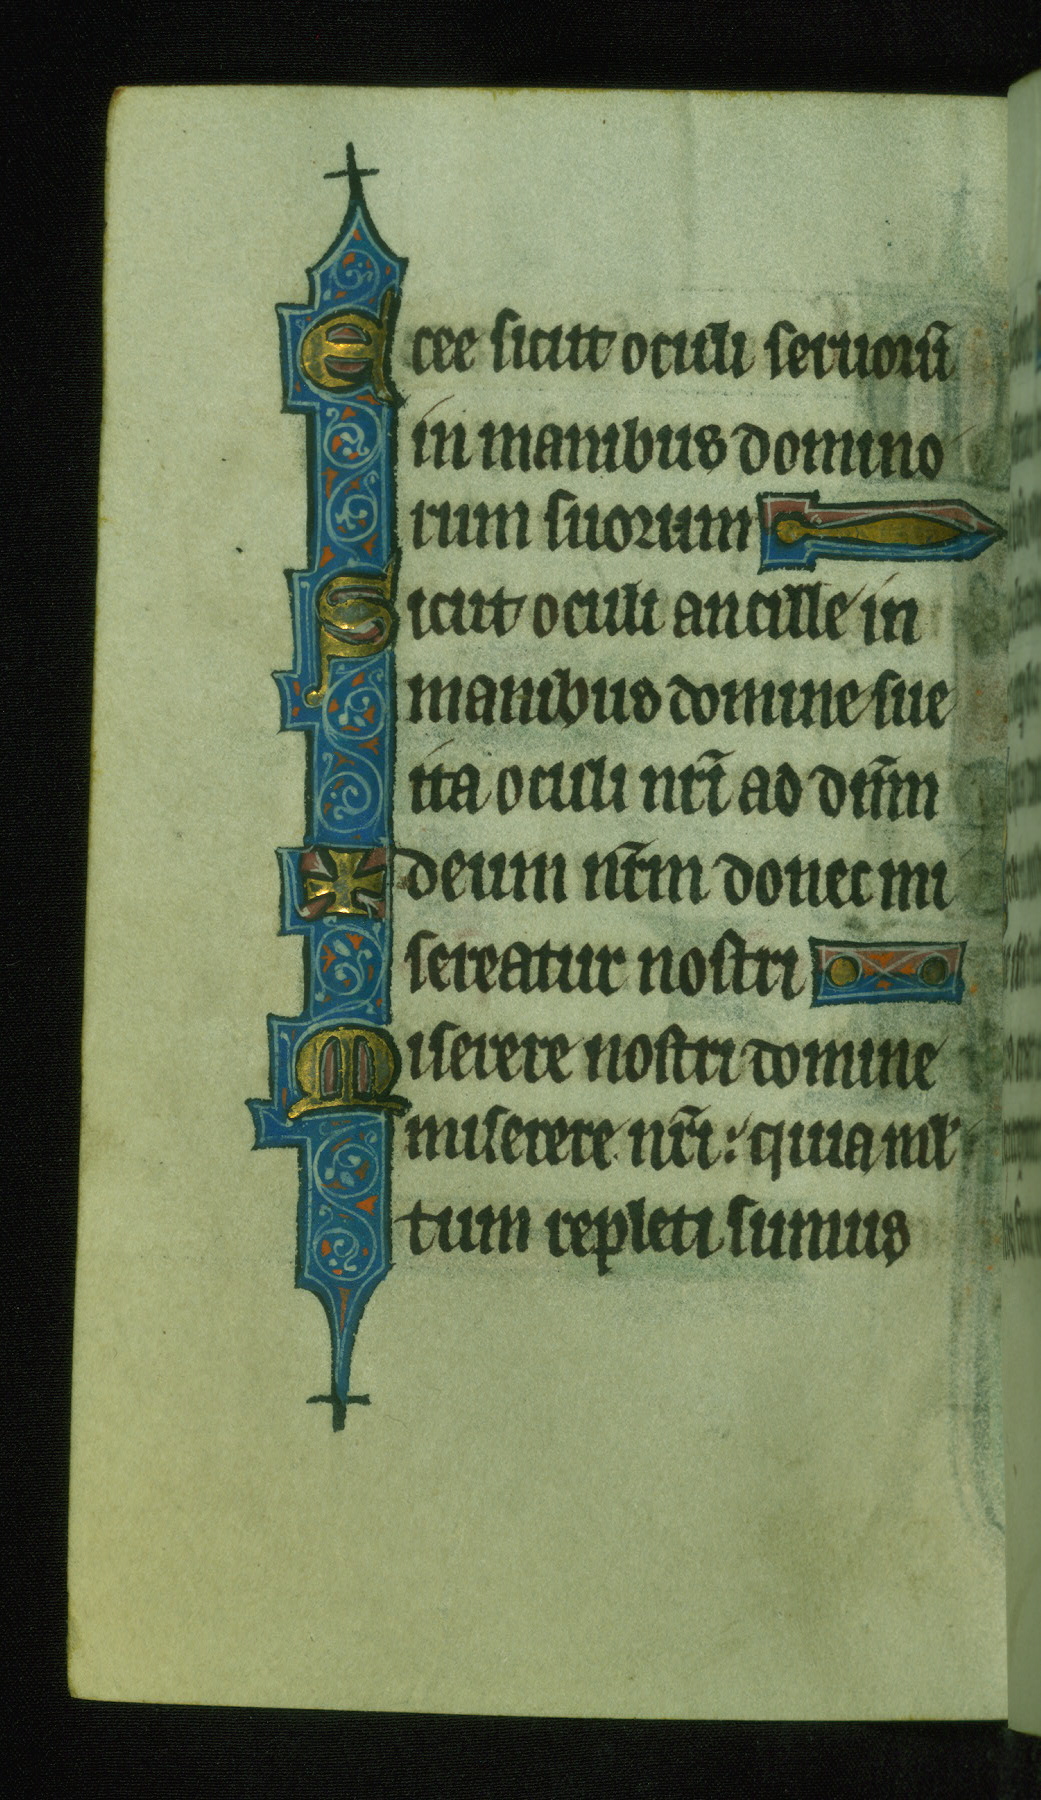 Ecce sicut oculi seruorū
in manibus domino
rum suorum
Sicut oculi ancille in
manibus domine sue
ita oculi nr̄i ad dn̄m
deum nr̄m donec mi
sereatur nostri
Miserere nostri domine
miserere nr̄i: quia ml̕
tum repleti sumus